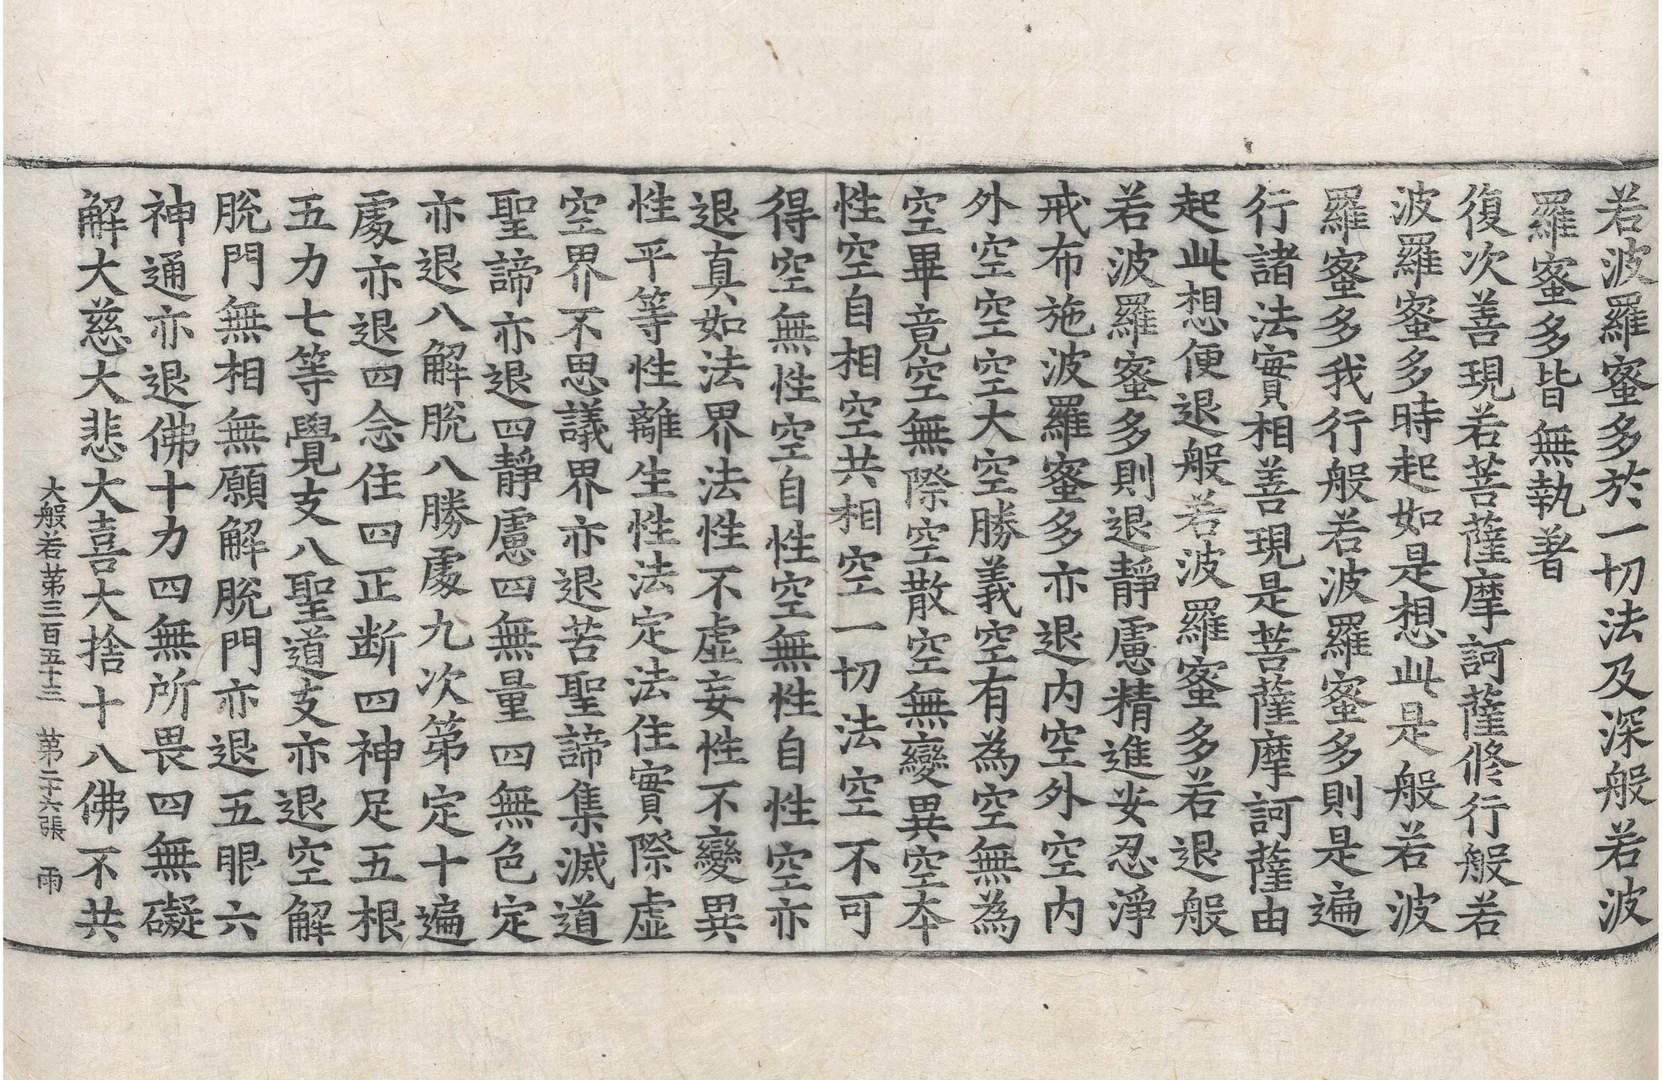 若波羅蜜多於一切法及深般若波
羅蜜多皆無執著
復次善現若菩薩摩訶薩修行般若
波羅蜜多時起如是想此是般若波
羅蜜多我行般若波羅蜜多則是遍
行諸法實相善現是菩薩摩訶薩由
起此想便退般若波羅蜜多若退般
若波羅蜜多則退靜慮精進安忍淨
戒布施波羅蜜多亦退內空外空內
外空空空大空勝義空有為空無為
空畢竟空無際空散空無變異空本
性空自相空共相空一切法空不可
得空無性空自性空無性自性空亦
退真如法界法性不虛妄性不變異
性平等性離生性法定法住實際虛
空界不思議界亦退苦聖諦集滅道
聖諦亦退四靜慮四無量四無色定
亦退八解脫八勝處九次第定十遍
處亦退四念住四正断四神足五根
五力七等覺支八聖道支亦退空解
脫門無相無願解脫門亦退五眼六
神通亦退佛十力四無所畏四無礙
解大慈大悲大喜大捨十八佛不共
大般若第三百五十三 第二十六張 雨